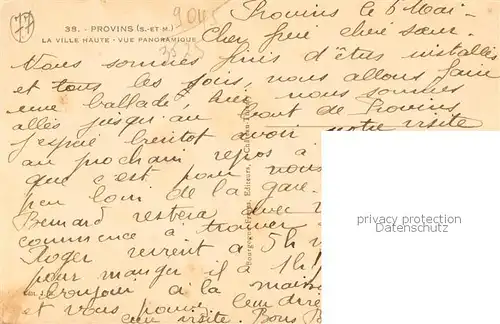 9045
38. - PROVINS (S.-ET-M.)
LA VILLE HAUTE - VUE PANORAMIQUE
Provins le 6 Mai -
Cher frère chère sœur.
Nous sommes finis d'être installés
et tous les soirs, nous allons faire
une ballade, hier nous sommes
allés jusqu'au bout de Provins
j'espère bientôt avoir votre visite
au prochain repos à
que c'est pour nous
peu loin de la gare.
Bernard restera avec
commence à trouver
Roger revient à 5h
pour manger il a 1h
toujour à la mais
et vous pouvez
visite. Bons B
Bourgogne Frères, Editeurs, Château-Thierry
privacy protection
Datenschutz